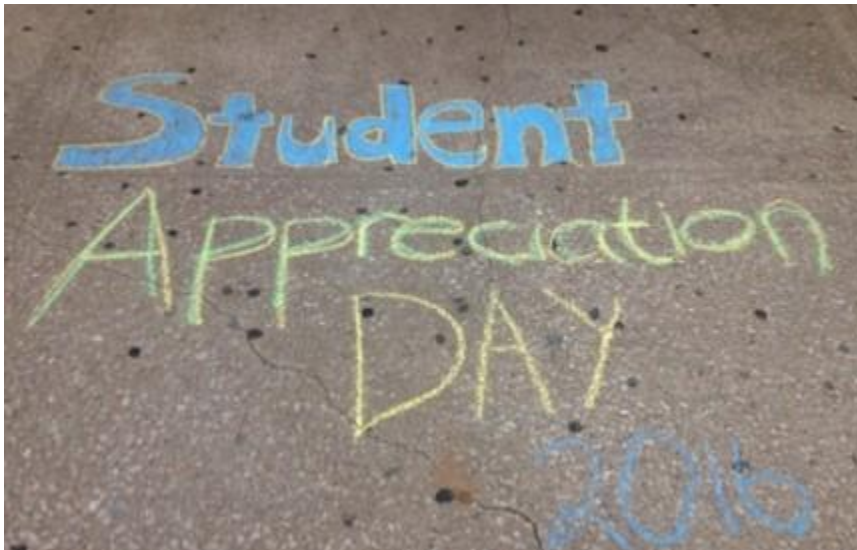 Student
Appreciation
DAY
2016